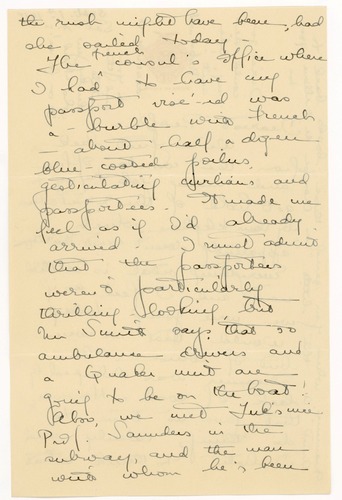 the rush might have been, had
she sailed today —
The french consul's office where
I had to have my
passport visé-ed was
a-burble with french
— about half a dozen
blue-coated poilus,
gesticulating civilians and
passportees. It made me
feel as if I'd already
arrived. I must admit
that the passportees
weren't particularly
thrilling looking, but
Mr Smith says that 50
ambulance drivers and
a Quaker unit are
going to be on the boat!
Also, we met nice
Prof. Saunders in the
subway, and the man
with whom he's been